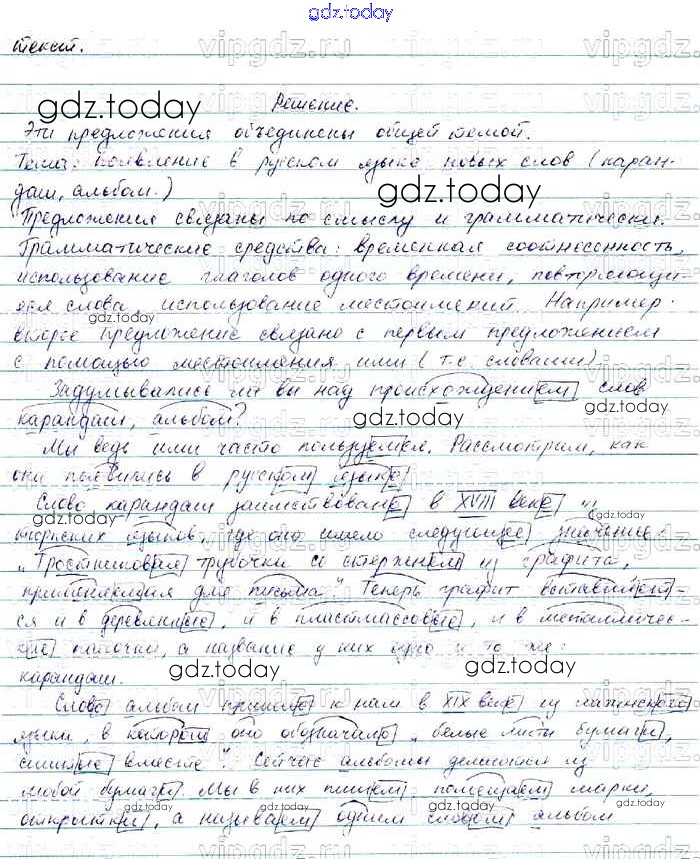 gdz.today
текст.
Решение.
Эти предложения объединены общей темой.
Тема: появление в русском языке новых слов (каран-
даш, альбом.)
Предложения связаны по смыслу и грамматически.
Грамматические средства: временная соотнесенность,
использование глаголов одного времени, повторяющи-
еся слова, использование местоимений. Например:
второе предложение связано с первым предложением
с помощью местоимения ими (т.е. словами)
Задумывались ли вы над происхождением слов
карандаш, альбом?
Мы ведь ими часто пользуемся. Рассмотрим, как
они появились в русском языке
Слово карандаш заимствовано в XVIII веке из
тюркских языков, где оно имело следующее значение:
„Тростниковая трубочки со стержнем из графита,
для письма". Теперь графит вставляет-
ся и в деревянные, и в пластмассовые, и в металличес-
кие палочки, а название у них одно и то же:
карандаш.
Слово альбом пришло к нам в XIX веке из латинского
языка, в котором оно обозначало „белые листы бумаги,
сшитые вместе". Сейчас альбомы делаются из
любой бумаги. Мы в них пишем, помещаем марки,
открытки, а называем одним словом альбом